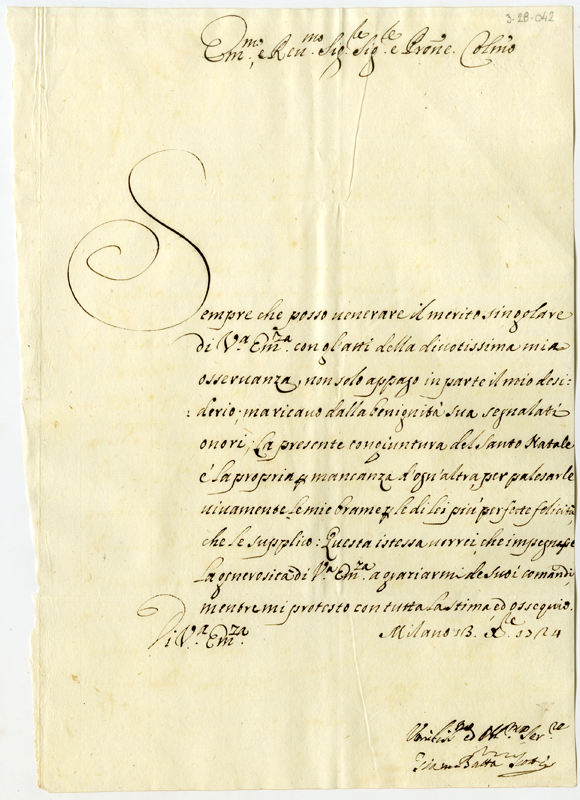 3-28-042
Em.mo, e Reu.mo Sig.re Sig.re e Prone. Colmo
Sempre che posso venerare il merito singolare
di V.a Em.za con gl'atti della divotissima mia
osseruanza, non solo appago in parte il mio desi:
:derio; ma ricauo dalla benignità sua segnalati
onori; La presente congiuntura del Santo Natale
é la propria, mancanza d'ogn'altra, per palesarle
viuamente le mie brame, le di lei più perfette felicità,
che le supplico: Questa istessa uorrei, che impegnasse
la generosità di V.a Em.za a graziarmi de suoi comandi,
mentre mi protesto con tutta la stima, ed ossequio.
Di V.a Em.za Milano 13. Xbre 1724
Vmiliss.mo ed Obl.mo Ser.re
Giam Batta